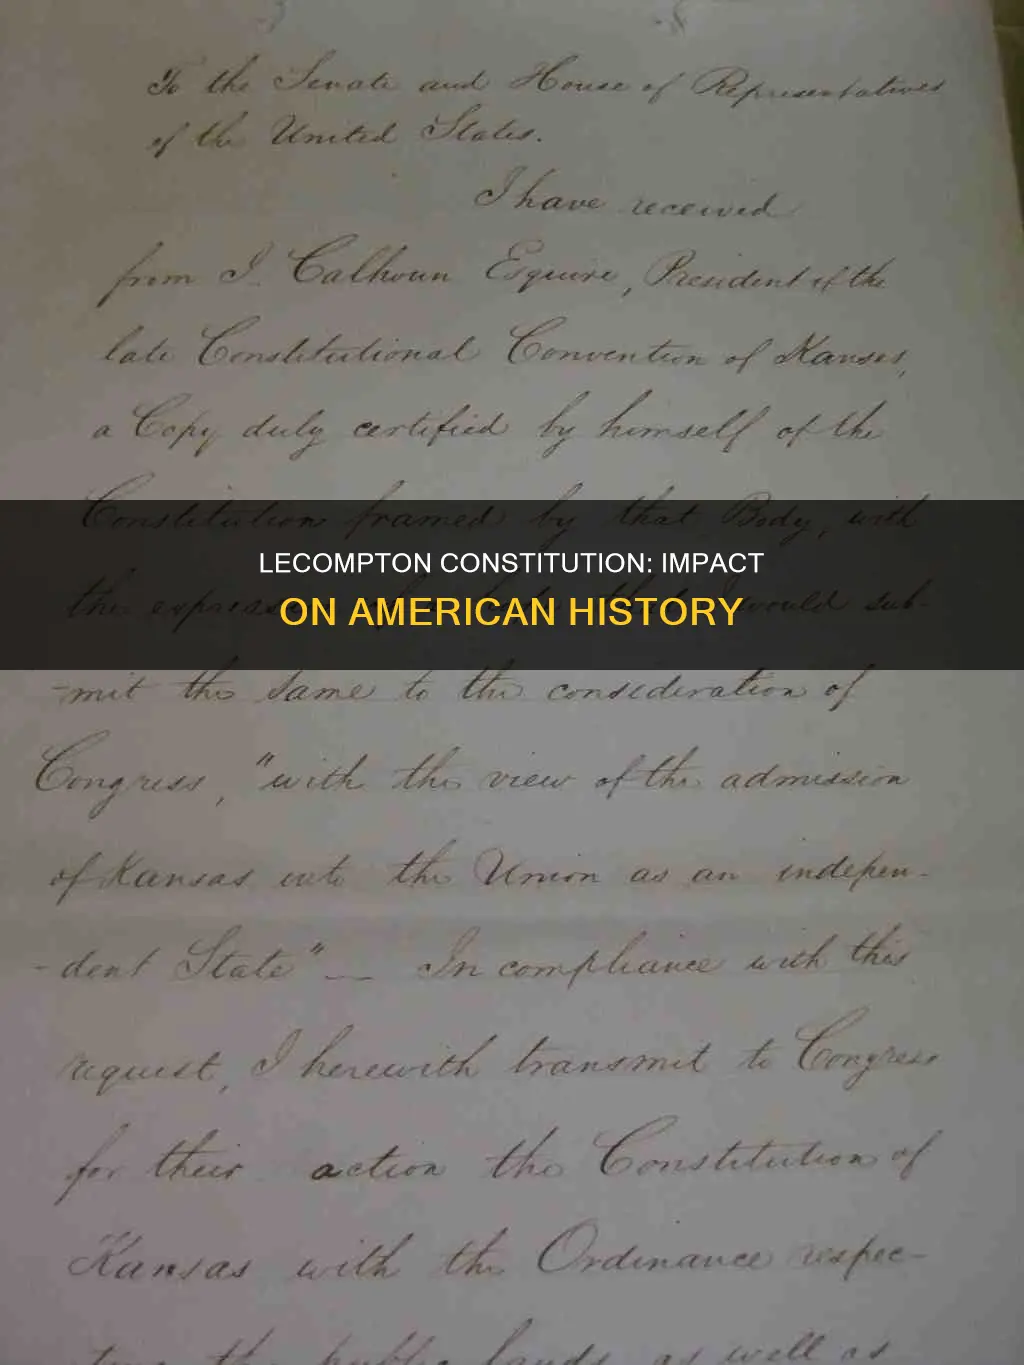 To the Senate and House of Representatives
of the United States.
I have received
from J. Calhoun Esquire, President of the
late Constitutional Convention of Kansas,
a Copy duly certified by himself of the
Constitution framed by that Body, with
LECOMPTON CONSTITUTION: IMPACT
ON AMERICAN HISTORY
the expression would sub-
-mit the same to the consideration of
Congress, "with the view of the admission
of Kansas into the Union as an indepen-
-dent State" — In compliance with this
request, I herewith transmit to Congress
for their action the Constitution of
Kansas with the Ordinance respec-
-ting the public lands as well as